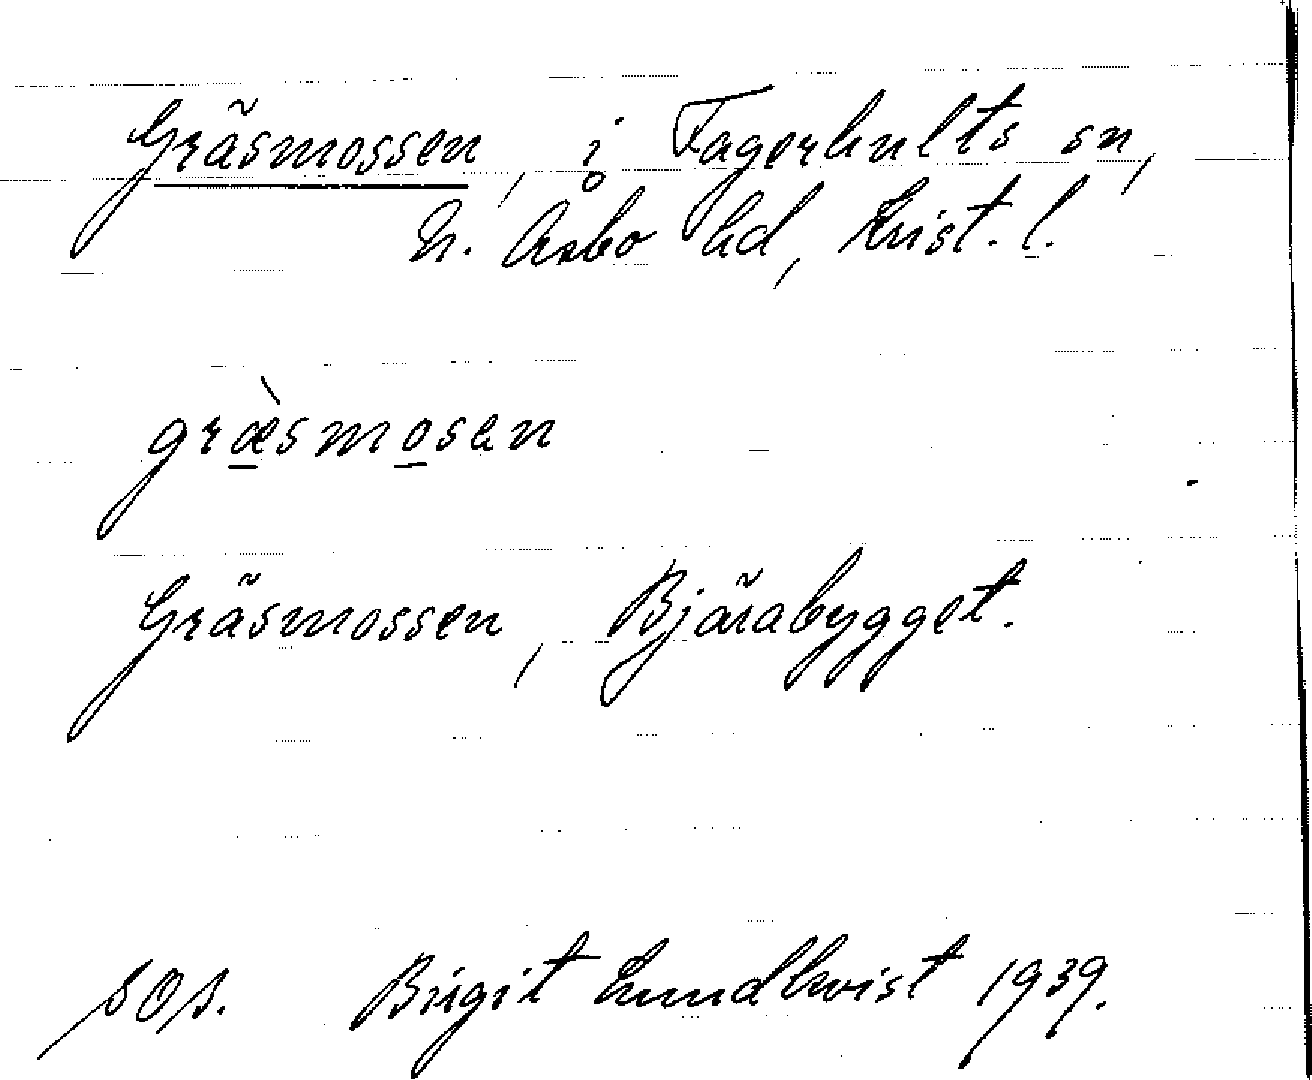 Gräsmossen, i Fagerhults sn,
N. Åsbo hd, Krist. l.
græ̀smosen
Gräsmossen, Bjärabygget.
sos. Birgit Lundkvist 1939.